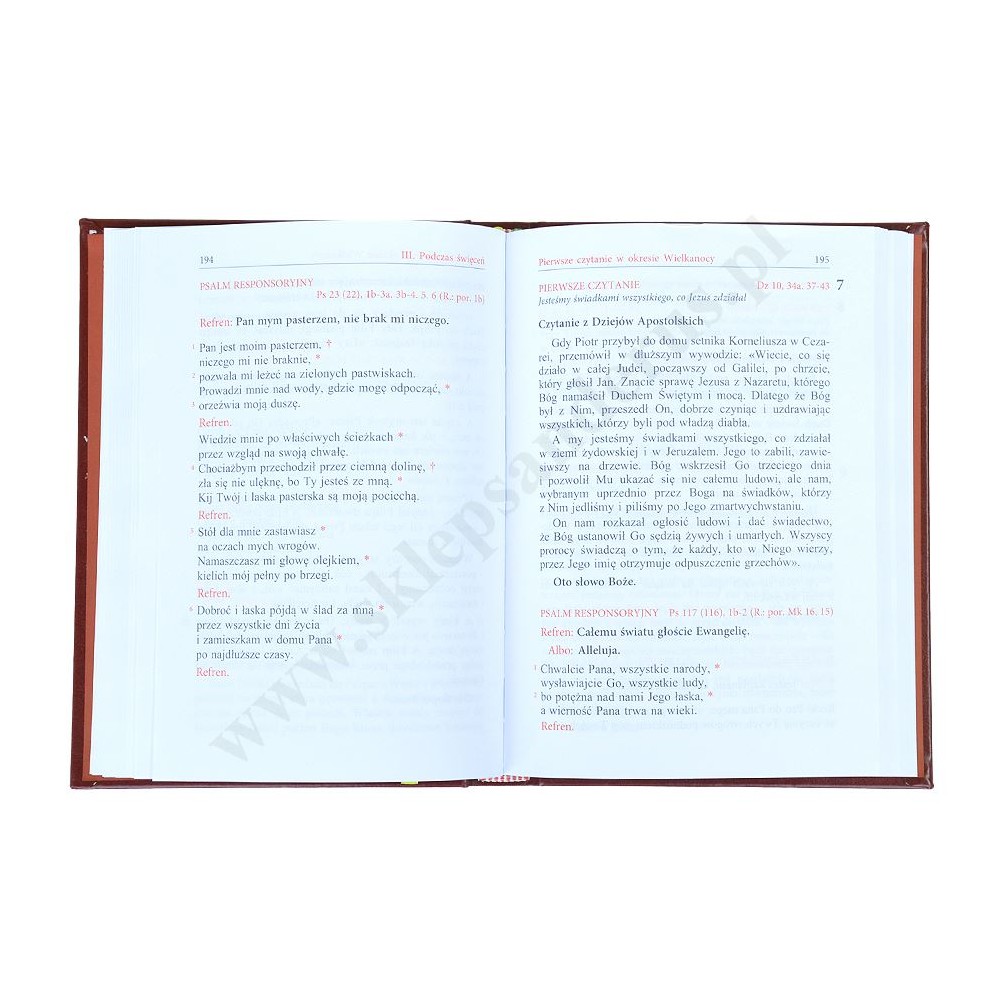 194 III. Podczas święceń
PSALM RESPONSORYJNY
Ps 23 (22), 1b-3a. 3b-4. 5. 6 (R.: por. 1b)
Refren: Pan mym pasterzem, nie brak mi niczego.
1 Pan jest moim pasterzem, †
niczego mi nie braknie, *
2 pozwala mi leżeć na zielonych pastwiskach.
Prowadzi mnie nad wody, gdzie mogę odpocząć, *
3 orzeźwia moją duszę.
Refren.
Wiedzie mnie po właściwych ścieżkach *
przez wzgląd na swoją chwałę.
4 Chociażbym przechodził przez ciemną dolinę, †
zła się nie ulęknę, bo Ty jesteś ze mną. *
Kij Twój i łaska pasterska są moją pociechą.
Refren.
5 Stół dla mnie zastawiasz *
na oczach mych wrogów.
Namaszczasz mi głowę olejkiem, *
kielich mój pełny po brzegi.
Refren.
6 Dobroć i łaska pójdą w ślad za mną *
przez wszystkie dni życia
i zamieszkam w domu Pana *
po najdłuższe czasy.
Refren.
Pierwsze czytanie w okresie Wielkanocy 195
PIERWSZE CZYTANIE Dz 10, 34a. 37-43 7
Jesteśmy świadkami wszystkiego, co Jezus zdziałał
Czytanie z Dziejów Apostolskich
Gdy Piotr przybył do domu setnika Korneliusza w Ceza-
rei, przemówił w dłuższym wywodzie: «Wiecie, co się
działo w całej Judei, począwszy od Galilei, po chrzcie,
który głosił Jan. Znacie sprawę Jezusa z Nazaretu, którego
Bóg namaścił Duchem Świętym i mocą. Dlatego że Bóg
był z Nim, przeszedł On, dobrze czyniąc i uzdrawiając
wszystkich, którzy byli pod władzą diabła.
A my jesteśmy świadkami wszystkiego, co zdziałał
w ziemi żydowskiej i w Jeruzalem. Jego to zabili, zawie-
siwszy na drzewie. Bóg wskrzesił Go trzeciego dnia
i pozwolił Mu ukazać się nie całemu ludowi, ale nam,
wybranym uprzednio przez Boga na świadków, którzy
z Nim jedliśmy i piliśmy po Jego zmartwychwstaniu.
On nam rozkazał ogłosić ludowi i dać świadectwo,
że Bóg ustanowił Go sędzią żywych i umarłych. Wszyscy
prorocy świadczą o tym, że każdy, kto w Niego wierzy,
przez Jego imię otrzymuje odpuszczenie grzechów».
Oto słowo Boże.
PSALM RESPONSORYJNY Ps 117 (116), 1b-2 (R.: por. Mk 16, 15)
Refren: Całemu światu głoście Ewangelię.
Albo: Alleluja.
1 Chwalcie Pana, wszystkie narody, *
wysławiajcie Go, wszystkie ludy,
2 bo potężna nad nami Jego łaska, *
a wierność Pana trwa na wieki.
Refren.